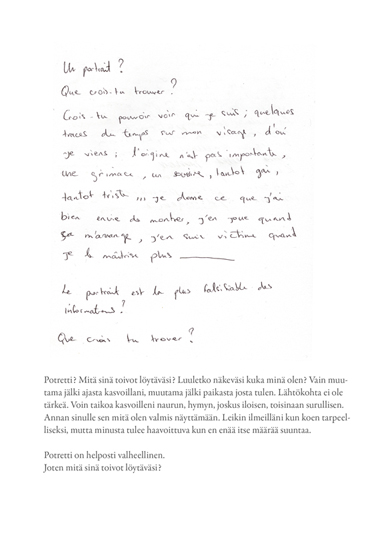 Un portrait ?
Que crois-tu trouver ?
Crois-tu pouvoir voir qui je suis ; quelques
traces du temps sur mon visage, d'où
je viens ; l'origine n'est pas importante,
une grimace, un sourire, tantot gai,
tantot triste ,,, je donne ce que j'ai
bien envie de montrer, j'en joue quand
ça m'arrange, j'en suis victime quand
je le maitrise plus
Le portrait est la plus falsifiable des
informations ?
Que crois tu trouver ?
Potretti? Mitä sinä toivot löytäväsi? Luuletko näkeväsi kuka minä olen? Vain muu-
tama jälki ajasta kasvoillani, muutama jälki paikasta josta tulen. Lähtökohta ei ole
tärkeä. Voin taikoa kasvoilleni naurun, hymyn, joskus iloisen, toisinaan surullisen.
Annan sinulle sen mitä olen valmis näyttämään. Leikin ilmeilläni kun koen tarpeel-
liseksi, mutta minusta tulee haavoittuva kun en enää itse määrää suuntaa.
Potretti on helposti valheellinen.
Joten mitä sinä toivot löytäväsi?